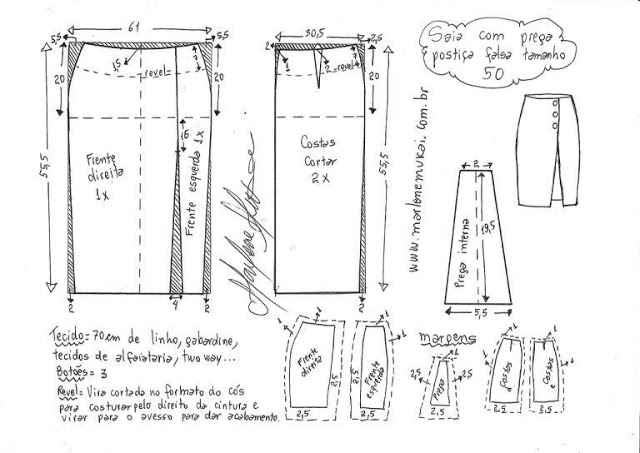 61
5,5
5,5
30,5
2,5
2
Saia com prega
postiça falsa tamanho
50
20
1,5
revel
3
20
1
2
revel
3
20
55,5
16
Frente
direita
1x
Frente esquerda 1x
Costas
Cortar
2x
55,5
www.marlenemukai.com.br
2
19,5
Prega interna
5,5
2
4
2
2
Tecido= 70cm de linho, gabardine,
tecidos de alfaiataria, two way...
Botões= 3
Revel= Vira cortada no formato do cós
para costurar pelo direito da cintura e
virar para o avesso para dar acabamento.
1
1
Frente
direita
2,5
2,5
1
1
Frente
esquerda
2,5
2,5
margens
1
1
Prega
2,5
2,5
2,5
1
1
Costas
2,5
1
1
Costas
2,5